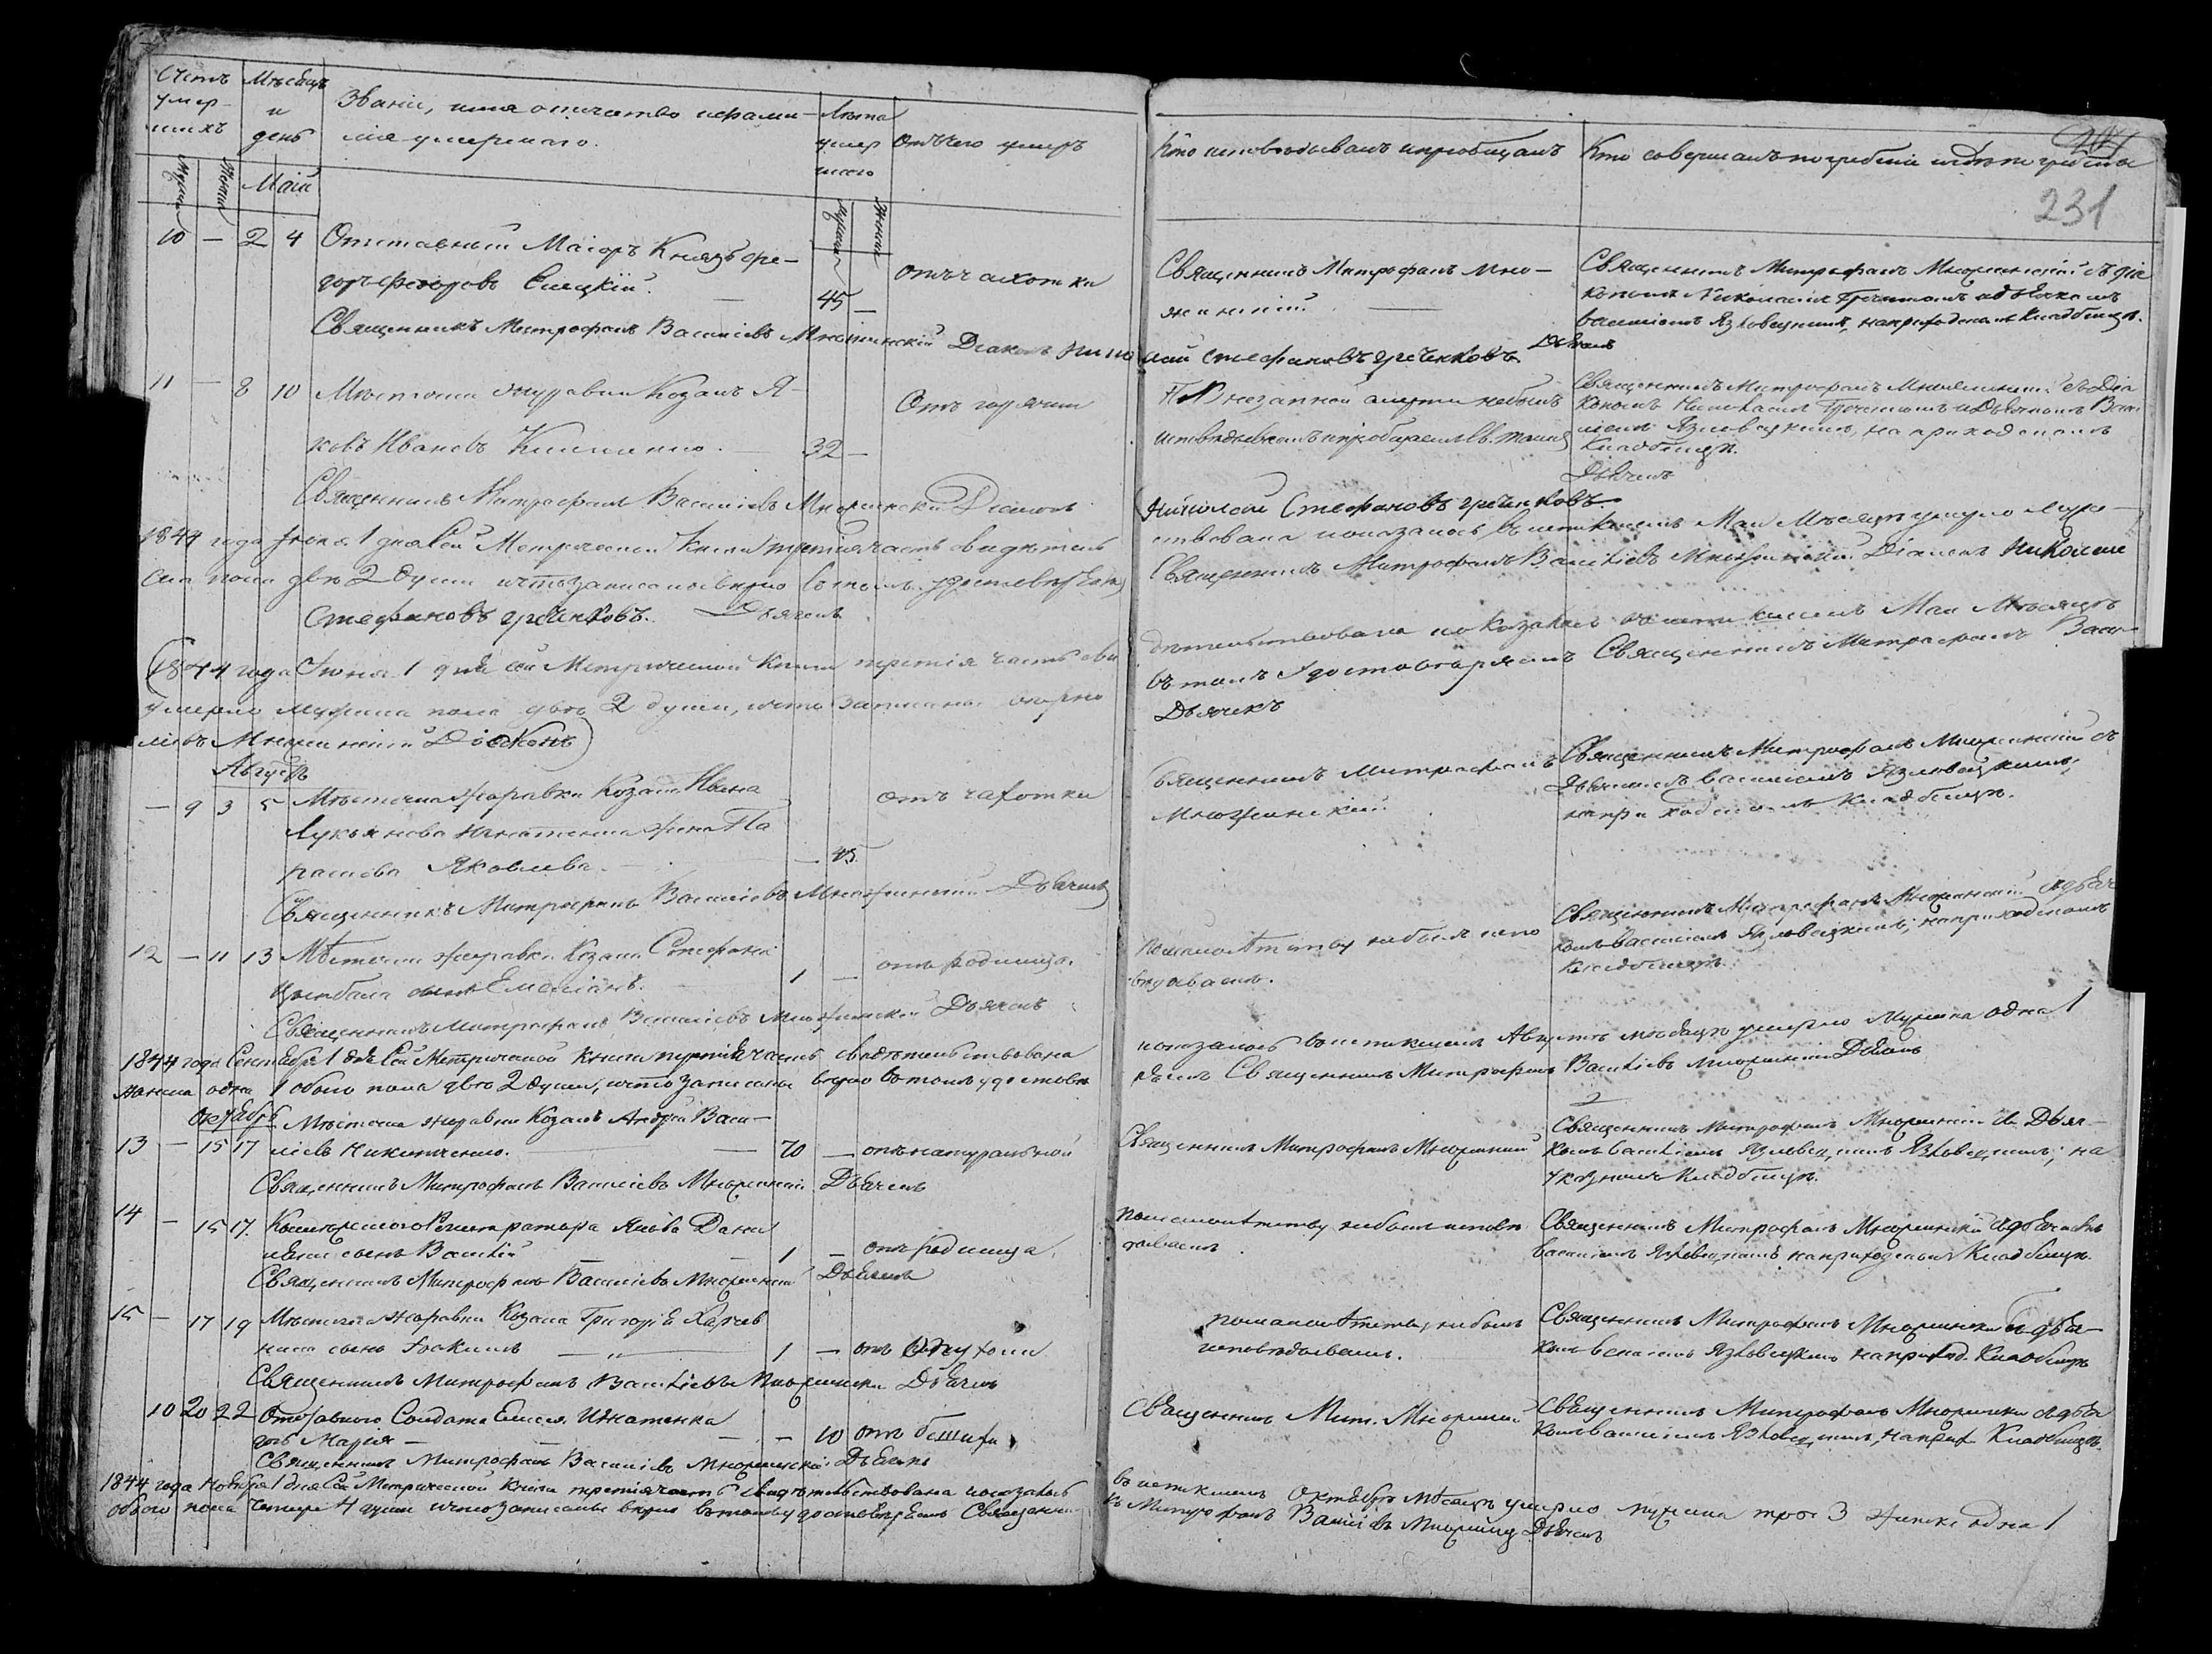 Счетъ умер-шихъ
Мѣсяцъ и день
Званіе, имя отчество и фами-
лія умершаго.
Лѣта умершаго
Отъ чего умеръ
Кто исповѣдывалъ и пріобщалъ
Кто совершалъ погребеніе и гдѣ погребены
231
Маій
10 — 2 4 Отставный Маіоръ Князь Гре-
горъ Федоровъ
45 —
отъ чахотки
Священникъ Митрофанъ Мно-
жинскій
Священникъ Митрофанъ Множинскій съ діа
кономъ Николаемъ и дьячкомъ
василіемъ Язловецкимъ, на приходскомъ Кладбищѣ.
Священникъ Митрофанъ Василіевъ Множинскій Діаконъ Нико
лай Стефановъ Гречениковъ. Дьячекъ
11 — 8 10 Мѣстечка Журавки Козакъ Я-
ковъ Ивановъ
32 —
Отъ горячки
По внезапной смерти небылъ
исповѣдываемъ и пріобщаемъ Св. таинъ
Священникъ Митрофанъ Множинскій съ Діа
кономъ Николаемъ и Дьячкомъ Васи
ліемъ Язловецкимъ, на приходскомъ
Кладбищѣ.
Священникъ Митрофанъ Василіевъ Множинскій Діаконъ
Николай Стефановъ Гречениковъ. Дьячекъ
1844 года Іюня 1 дня Сей Метрической Книги третія часть свидѣтель
ствована показалось въ истекшемъ Маи Мѣсяцѣ умерло муже-
ска пола двѣ 2 души и что записано вѣрно въ томъ удостовѣряемъ
Священникъ Митрофанъ Василіевъ Множинскій Діаконъ Николай
Стефановъ Гречениковъ. Дьячекъ
(1844 года Іюня 1 дня сей Метрической Книги третія часть сви
дѣтельствована показалось въ истекшемъ Маи Мѣсяцѣ
умерло мужеска пола двѣ 2 души, и что записано вѣрно
въ томъ удостовѣряемъ Священникъ Митрофанъ Васи-
ліевъ Множинскій Діаконъ)
Дьячекъ
Августъ
— 9 3 5 Мѣстечка Журавки Козака Ивана
Лукьянова Игнатенка жена Па
раскева Яковлева.
— 45
отъ чахотки
Священникъ Митрофанъ
Множинскій
Священникъ Митрофанъ Множинскій съ
Дьячкомъ василіемъ Язловецкимъ,
на приходскомъ Кладбищѣ.
Священникъ Митрофанъ Василіевъ Множинскій Дьячекъ
12 — 11 13 Мѣстечка Журавки Козака Стефана
Цымбала сынъ Емеліанъ.
1 —
отъ родимца.
по малолѣтству небылъ испо
вѣдываемъ.
Священникъ Митрофанъ Множинскій съ дьяч
комъ василіемъ Язловецкимъ, на приходскомъ
Кладбищѣ.
Священникъ Митрофанъ Василіевъ Множинскій Дьячекъ
1844 года Сентября 1 дня Сей Метрической Книги третія часть свидѣтельствована
показалось въ истекшемъ Августѣ мѣсяцѣ умерло Мужеска одна 1
женска одна 1 обоего пола двѣ 2 души, и что записаны вѣрно въ томъ удостовѣ
ряемъ Священникъ Митрофанъ Василіевъ Множинскій Дьячекъ
Октябрь
13 — 15 17 Мѣстечка Журавки Козакъ Андрей Васи-
ліевъ Никитченко.
70 — отъ натуральной
Священникъ Митрофанъ Множинскій
Священникъ Митрофанъ Множинскій съ Дьяч-
комъ василіемъ Язловецкимъ, на
Кладбищѣ.
Священникъ Митрофанъ Василіевъ Множинскій Дьячекъ
14 — 15 17. Коллежскаго Регистратора Якова Дани
сынъ Василій
1 — отъ родимца.
по малолѣтству небылъ исповѣ
дываемъ
Священникъ Митрофанъ Множинскій съ дьячкомъ
василіемъ Язловецкимъ на приходскомъ Кладбищѣ.
Священникъ Митрофанъ Василіевъ Множинскій Дьячекъ
15 — 17 19 Мѣстечка Журавки Козака Григорія Харчев
сынъ Іоакимъ
1 — отъ
по малолѣтству небылъ
исповѣдываемъ.
Священникъ Митрофанъ Множинскій съ дья-
комъ василіемъ Язловецкимъ на приход. Кладбищѣ
Священникъ Митрофанъ Василіевъ Множинскій Дьячекъ
10 20 22 Отставного Солдата Елисея Игнатенка
дочь Марія
— 10 отъ бешихи
Священникъ Мит. Множинскій
Священникъ Митрофанъ Множинскій съ дья
комъ василіемъ Язловецкимъ, на прих. Кладбищѣ.
Священникъ Митрофанъ Василіевъ Множинскій Дьячекъ
1844 года Ноября 1 дня Сей Метрической Книги третія часть свидѣтельствована показалось
въ истекшемъ Октябрѣ Мѣсяцѣ умерло мужска трое 3 женска одна 1
обоего пола четыре 4 души и что записаны вѣрно въ томъ удостовѣряемъ Священни
къ Митрофанъ Василіевъ Множинскій Дьячекъ